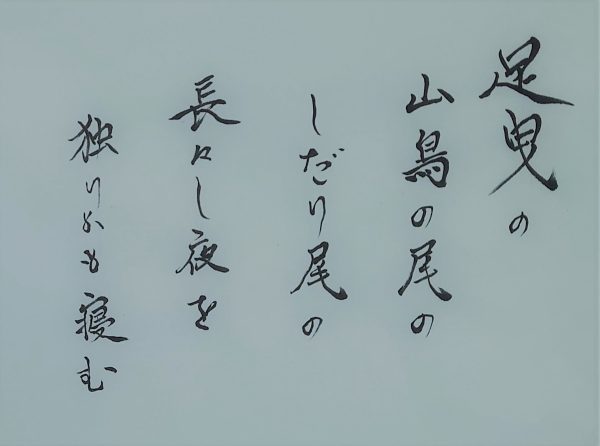 足曳の
山鳥の尾の
しだり尾の
長々し夜を
独りかも寝む